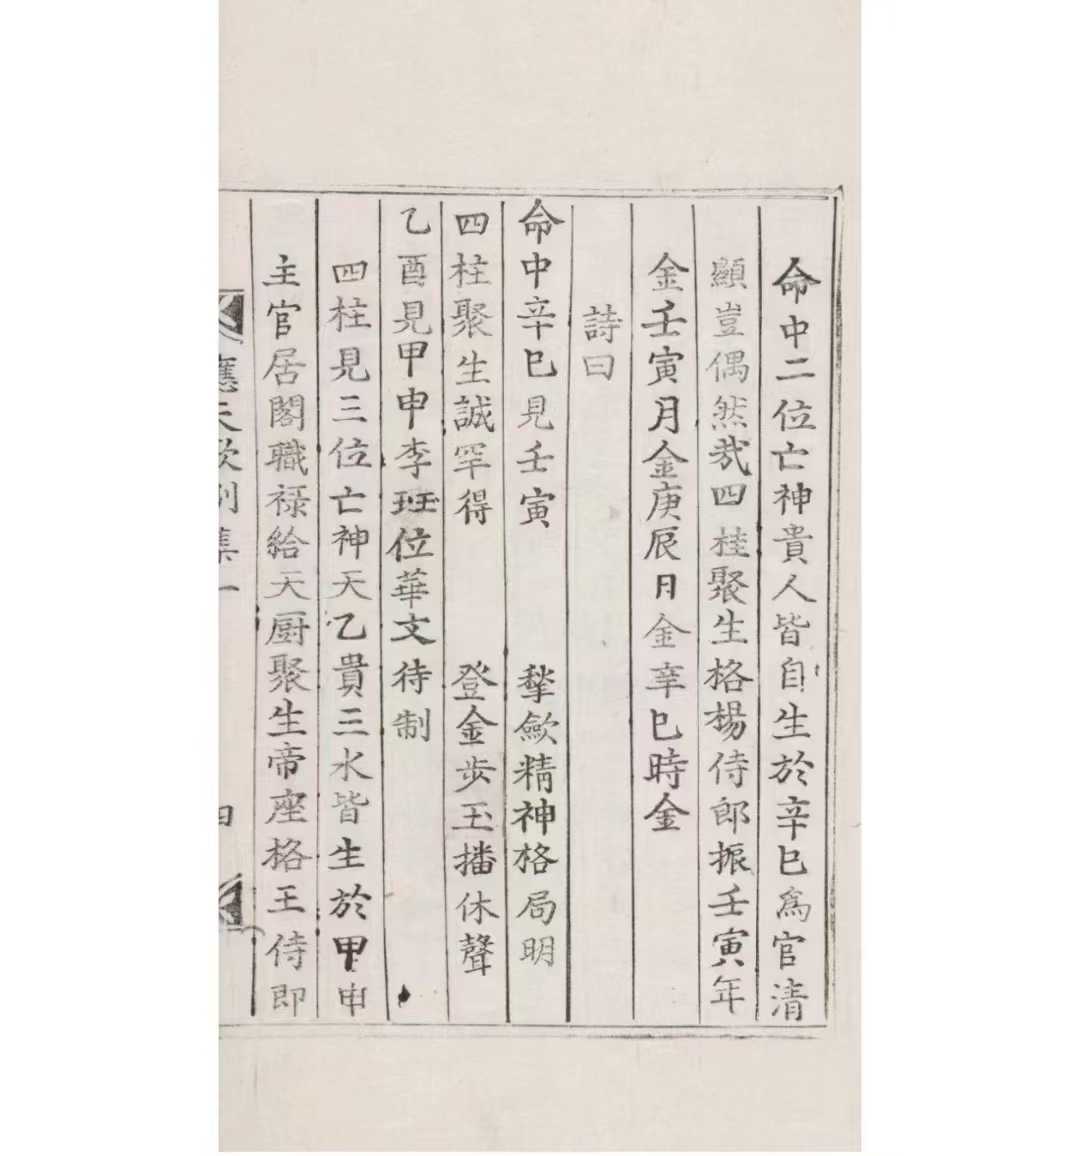 命中二位亡神貴人皆自生於辛巳爲官清
顯豈偶然㦲四桂聚生格楊侍郎振壬寅年
金壬寅月金庚辰日金辛巳時金
詩曰
命中辛巳見壬寅 揫歛精神格局明
四柱聚生誠罕得 登金步玉播休聲
乙酉見甲申李班位華文待制
四柱見三位亡神天乙貴三水皆生於甲申
主官居閣職祿給天厨聚生帝座格王侍即